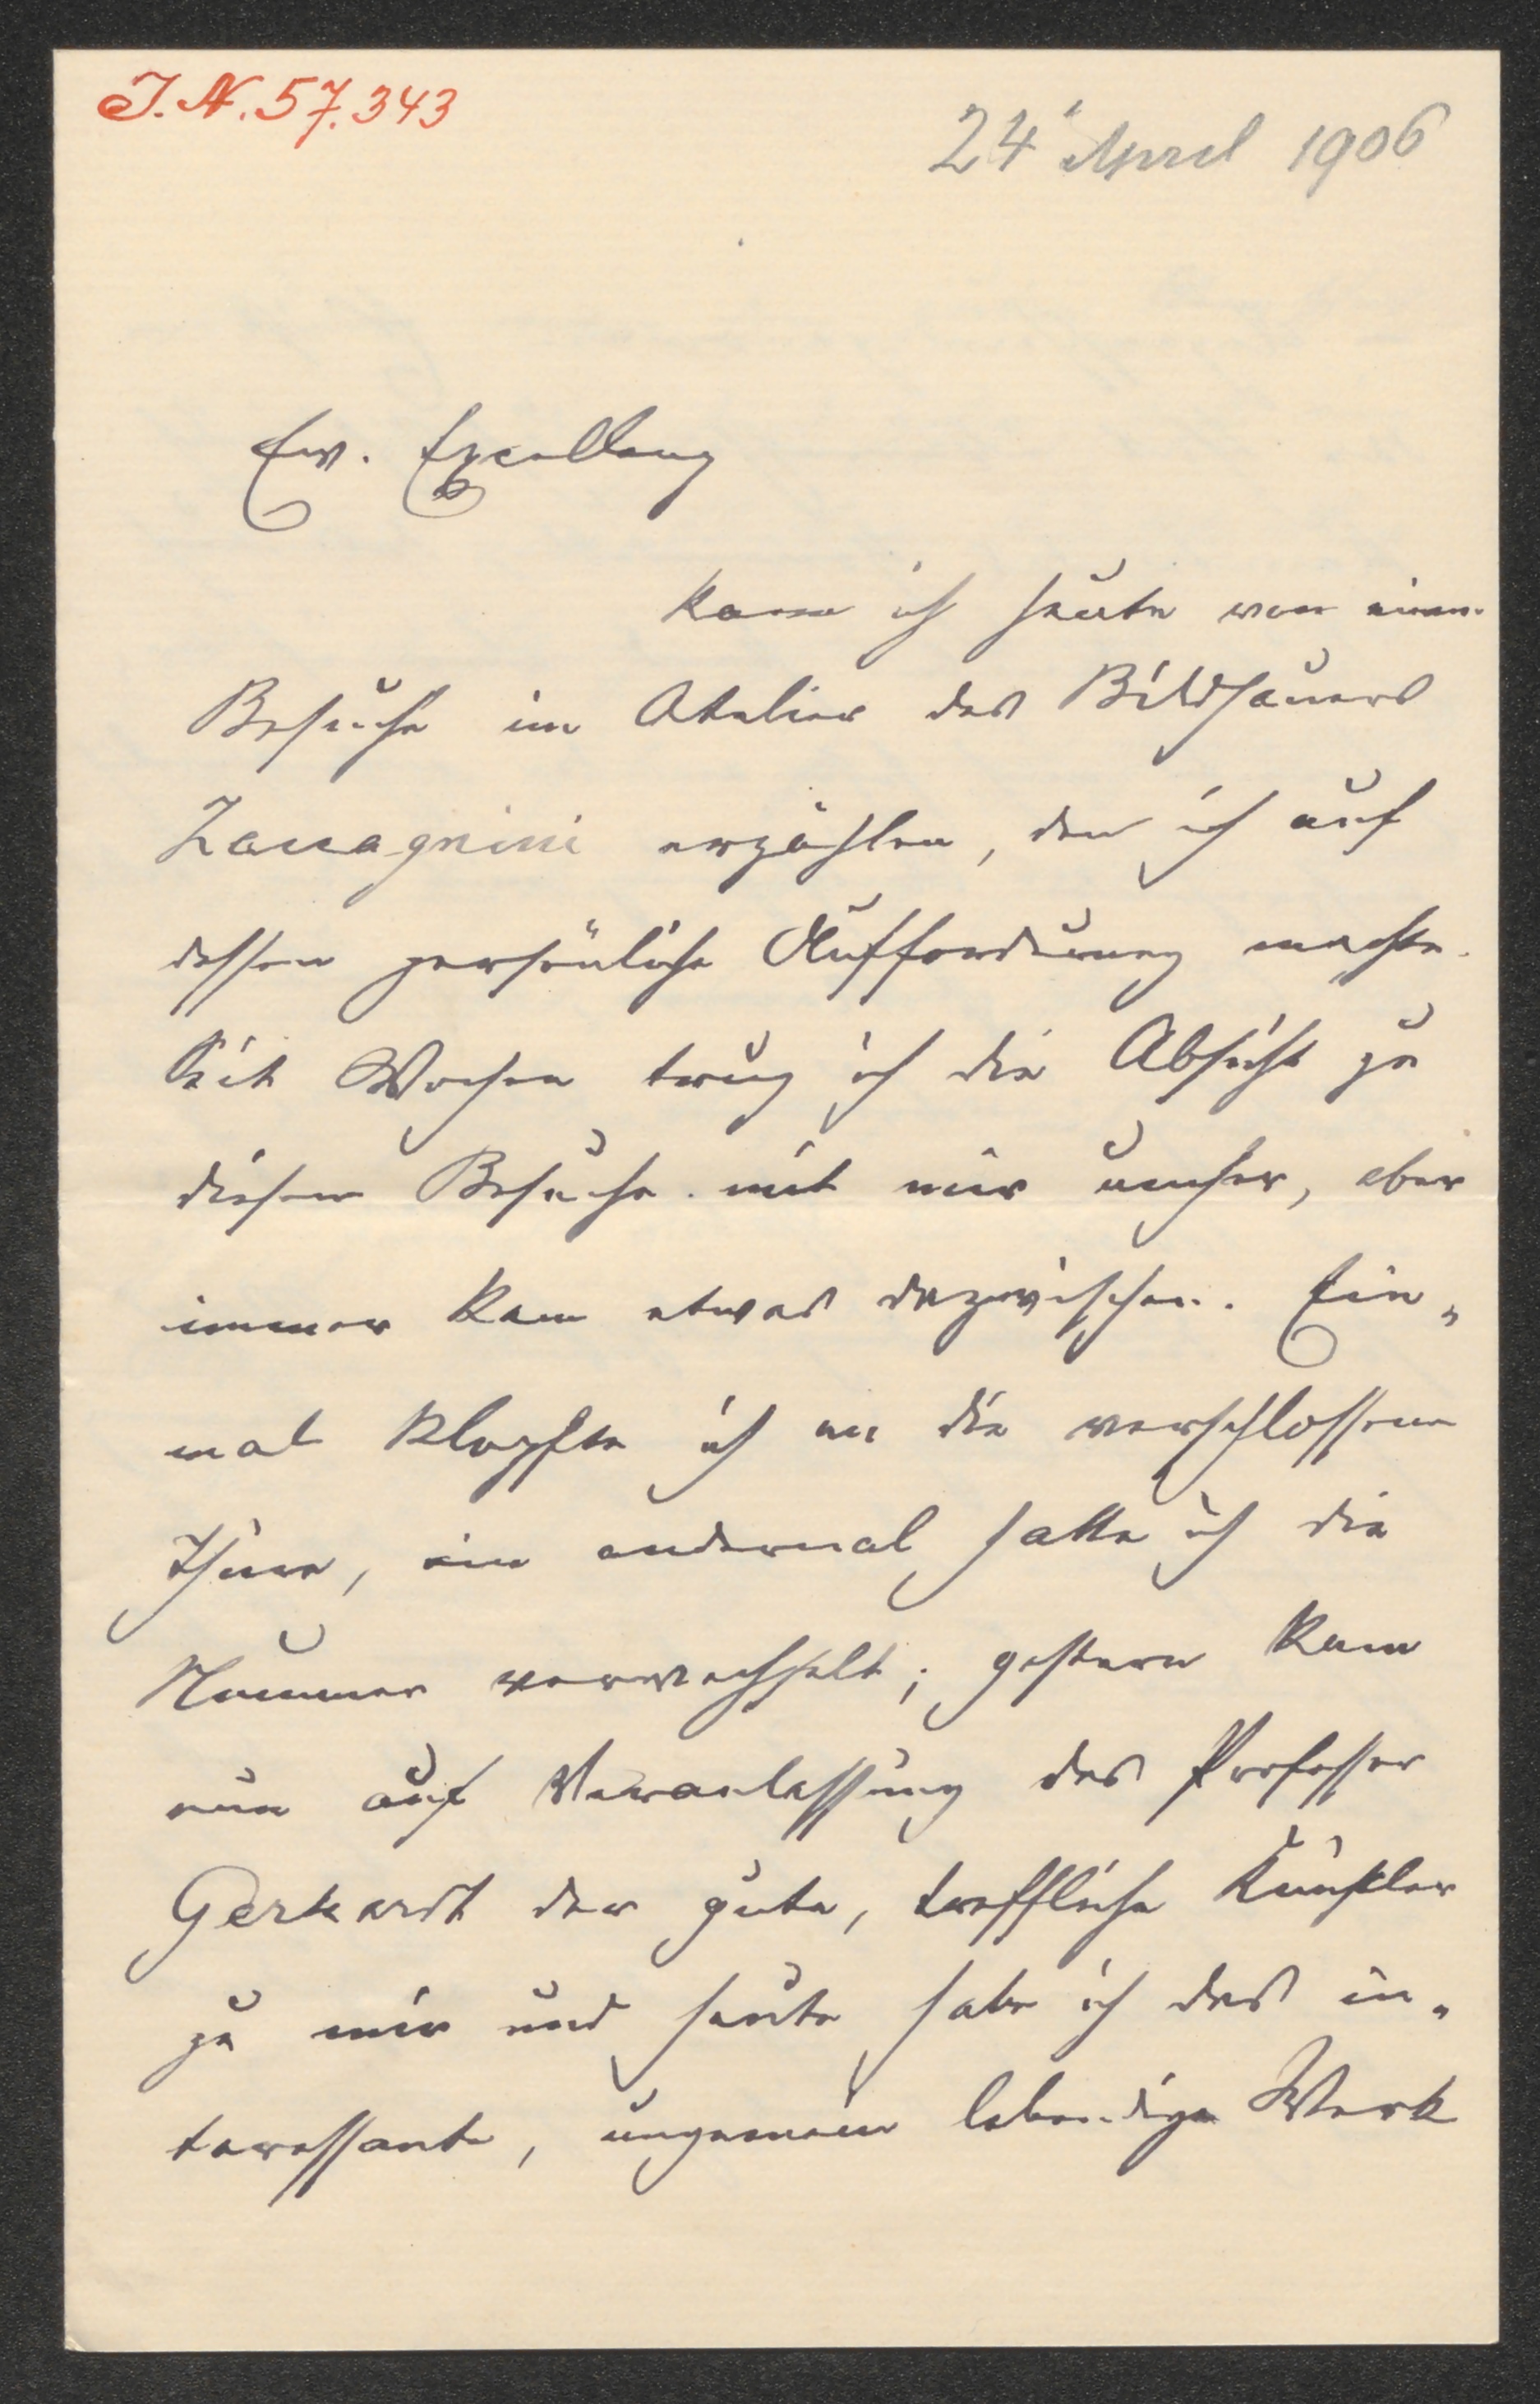 J.N. 57.343
24' April 1906
Ew. Excellenz
kann ich heute von einem
Besuche im Atelier des Bildhauers
Zaccagnini erzählen, den ich auf
dessen persönliche Aufforderung machte.
Seit Wochen trug ich die Absicht zu
diesem Besuche mit mir umher, aber
immer kam etwas dazwischen. Ein„
mal klopfte ich an die verschlossene
Thüre, ein andermal hatte ich die
Nummer verwechselt; gestern kam
nun auf Veranlassung des Professor
Gerhardt der gute, treffliche Künstler
zu mir und heute habe ich das in„
teressante, ungemein lebendige Werk